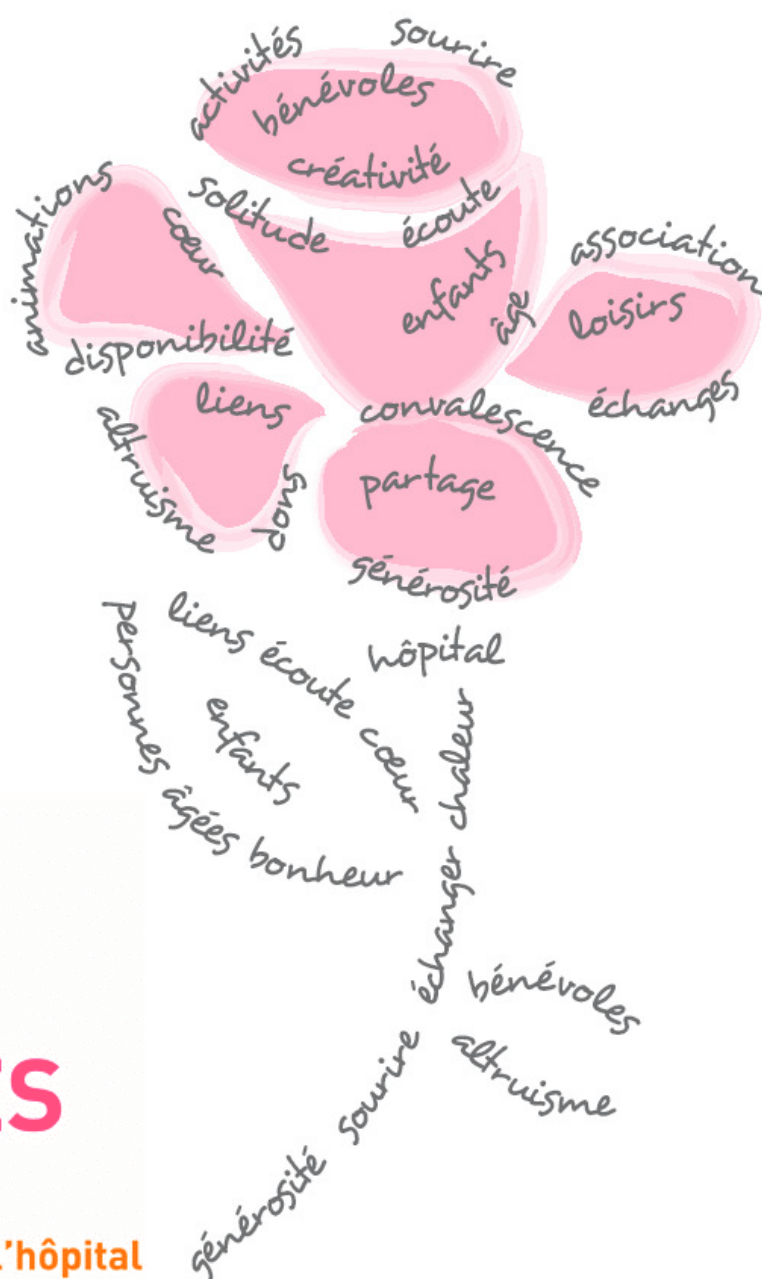 activités
sourire
bénévoles
créativité
solitude
écoute
animations
coeur
enfants
âge
association
loisirs
échanges
disponibilité
liens
convalescence
altruisme
dons
partage
générosité
hôpital
liens écoute cœur
enfants
personnes âgées bonheur
chaleur
échanger
bénévoles
altruisme
sourire
générosité
l'hôpital